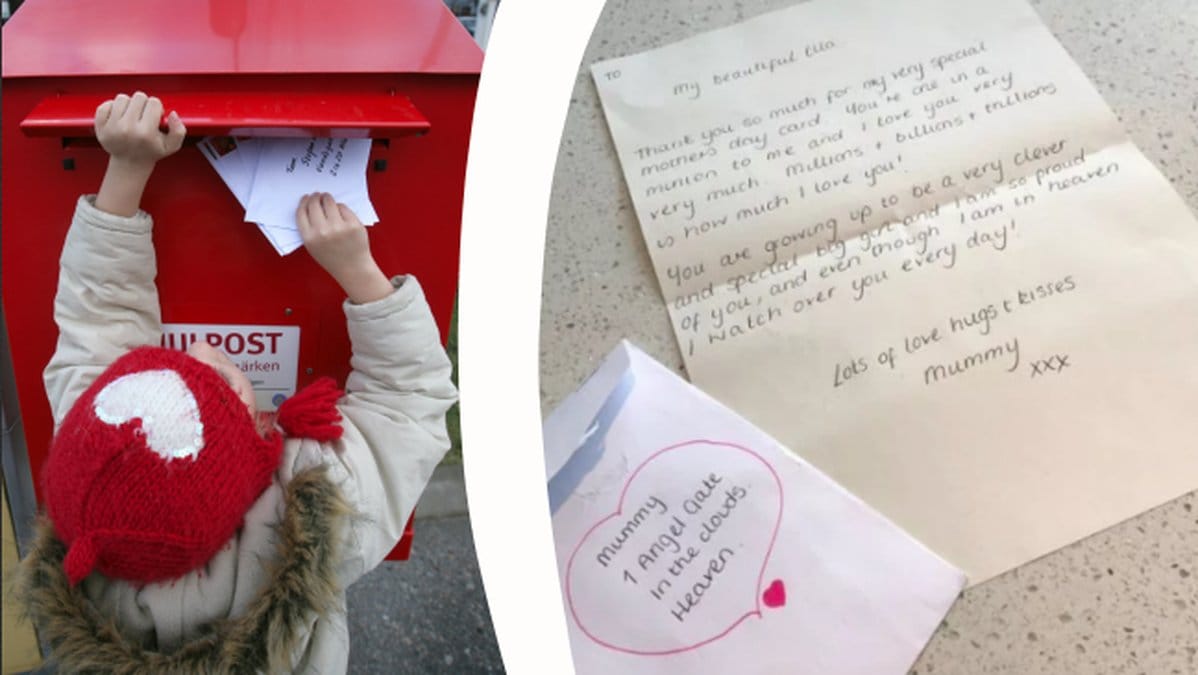 JULPOST
märken
TO
My beautiful Ella
Thank you so much for my very special
mothers day card. You're one in a
minion to me and I love you very
very much. Millions + billions + trillions
is how much I love you!
You are growing up to be a very clever
and special big girl and I am so proud
of you, and even though I am in heaven
I watch over you every day!
Lots of love hugs + kisses
Mummy
xxx
Mummy
1 Angel Gate
In the clouds.
Heaven.